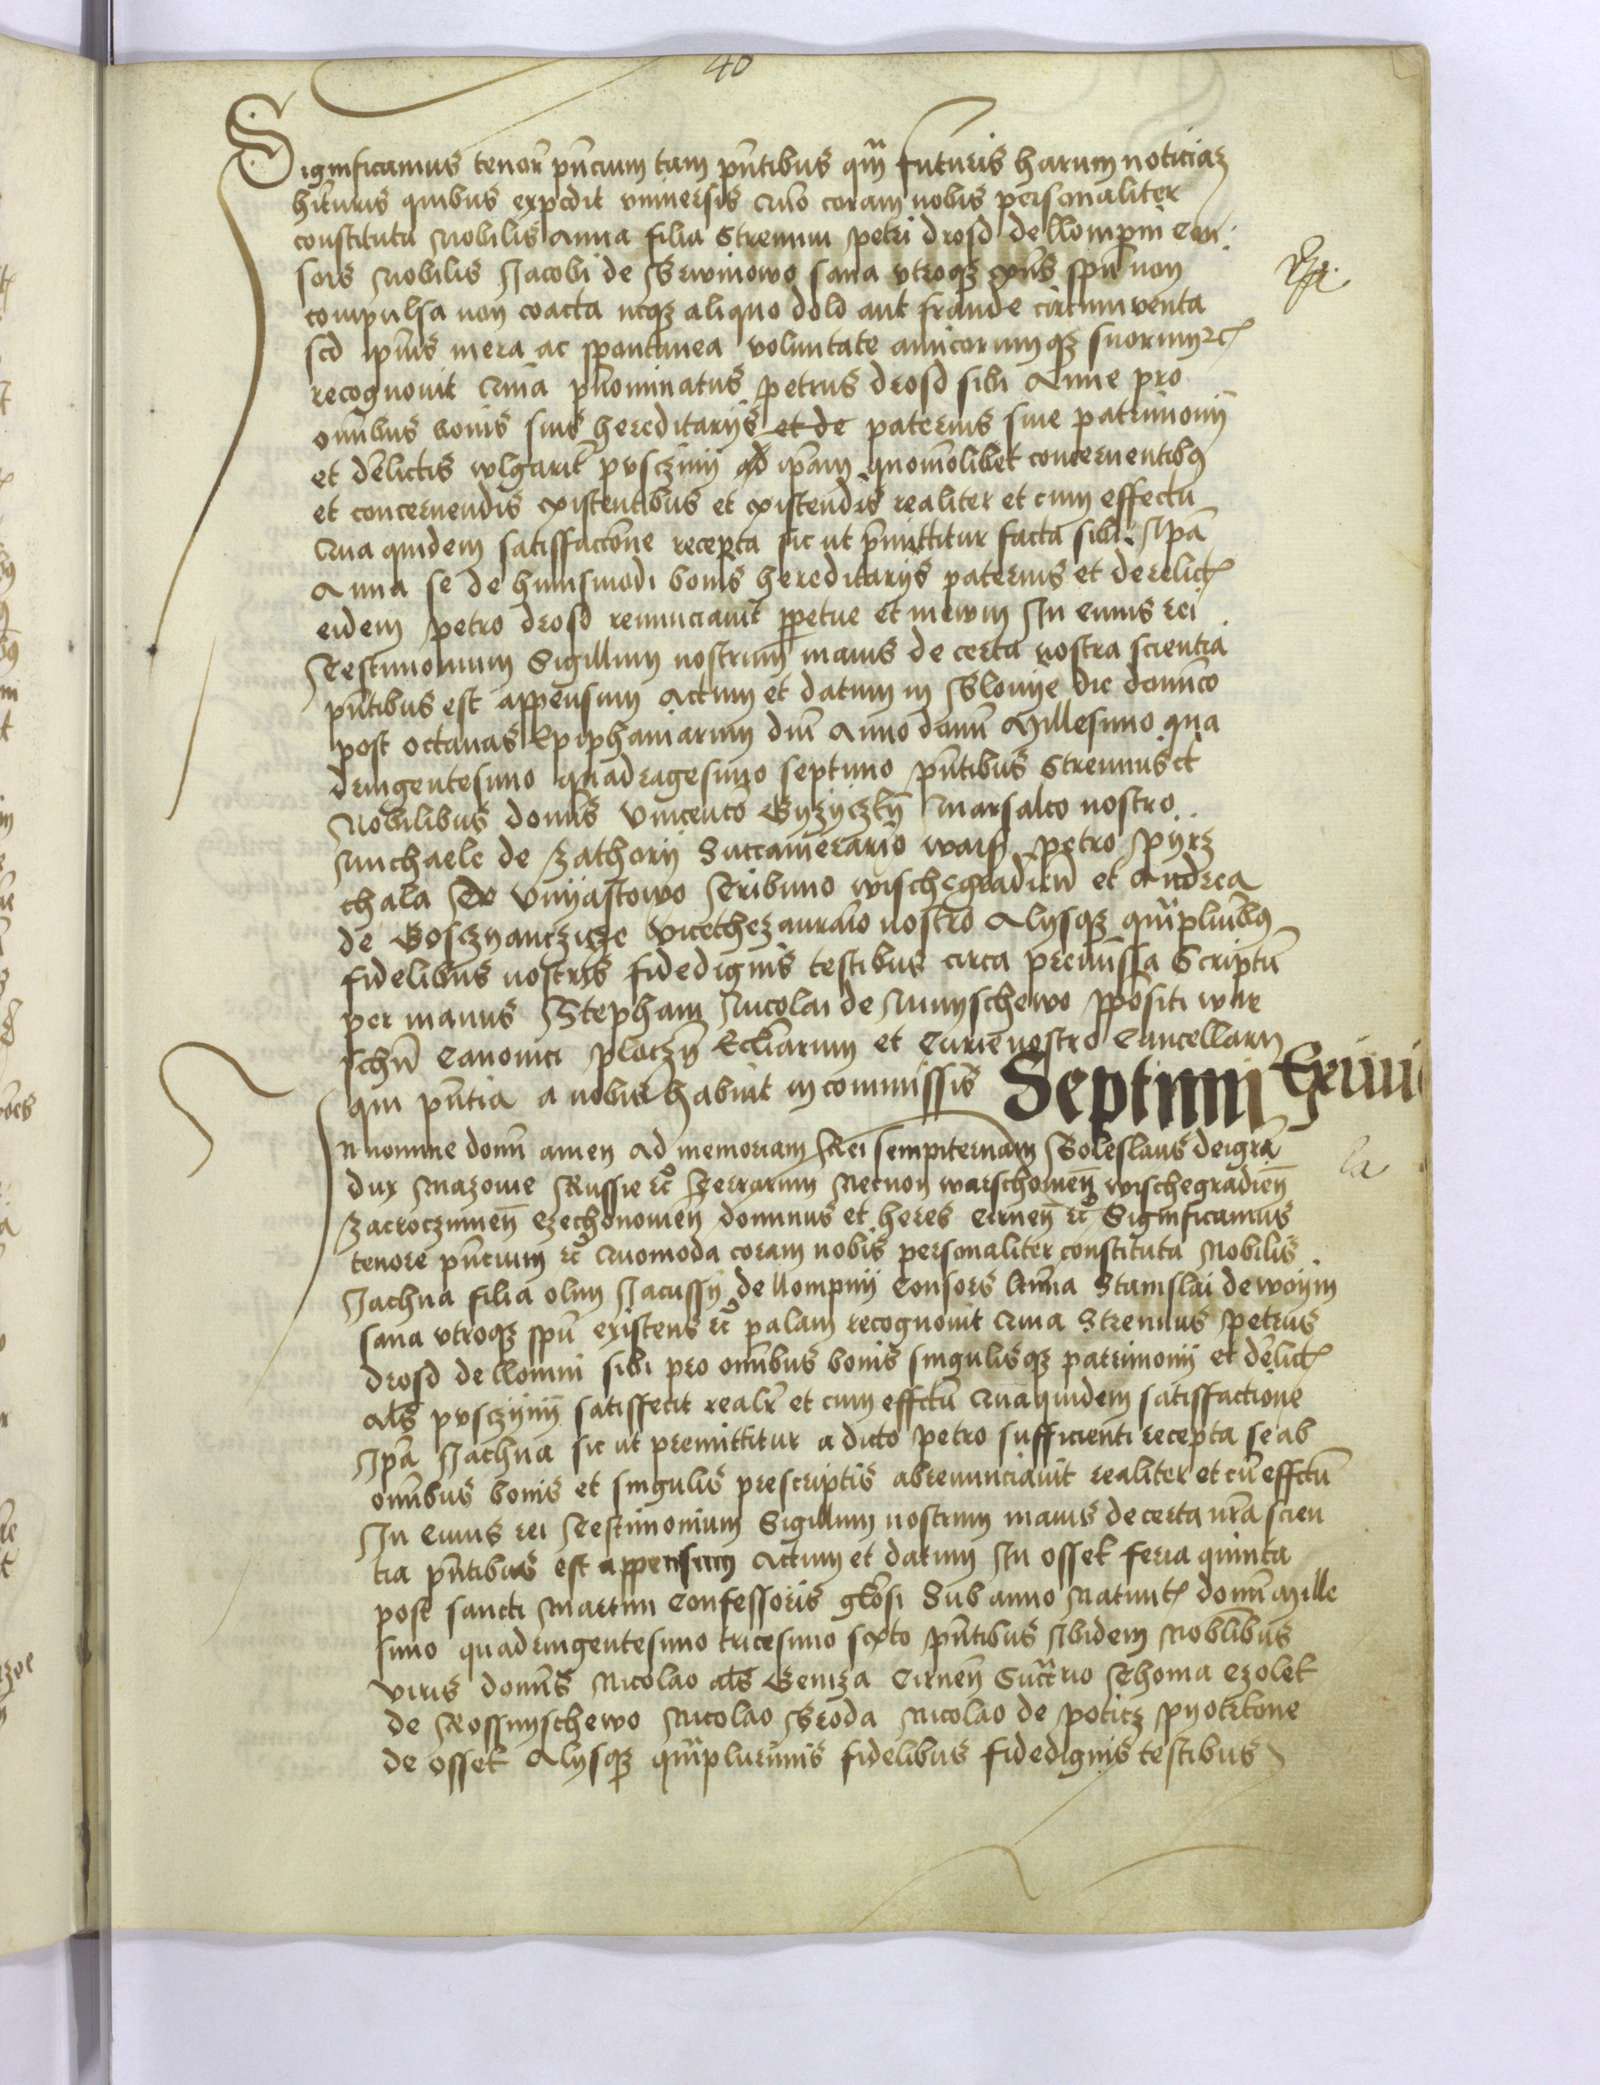 40
Significamus tenor pntium tam pntibus qm futuris harum noticiaz
hituris quibus expedit universis Quo coram nobis personaliter
constituta Nobilis Anna filia Strenuui petri drosd de llompin Con
sors Nobilis Jacobi de Srwinowo sana utroqz spu non
compulsa non coacta neqz aliquo dolo aut fraude circumventa
sed ipius mera ac spontanea voluntate amicorumqz suorum
recognovit Quia pnominatus petrus drosd sibi Anne pro
omnibus bonis suis hereditarijs et de paternis sive patrimonij
et delictis wlgarit pusczinij ad ipam quomolibet concernentibus
et concernendis existentibus et existendis realiter et cum effectu
Qua quidem satisffaccione recepta sic ut pmittitur facta sibi Ipa
Anna se de huiusmodi bonis hereditarijs paternis et derelict
eidem petro drosd renunciavit ppetue et in ewm In Cuius rei
Testimonium Sigillum nostrum maius de certa nostra scientia
pntibus est appensum Actum et datum in Blonije die dominco
post octavas Epiphaniarum dni Anno domi Millesimo qua
dringentesimo quadragesimo septimo pntibus Strenuis et
Nobilibus domis Vincento Gyzyczky Marsalco nostro
Michaele de Zathorij Succamerario wars petro Spyrz
chala de Unijastowo Tribuno wischegradien et Andrea
de Gosczyanczicze vicethezaurario nostro Alysqz qmpluribus
fidelibus nostris fidedignis testibus circa premissa Scriptu
per manus Stephani Nicolai de Mnijschewo ppositi war
schn Canonici ploczn Eccliarum et Curie nostre Cancellarij
qui pntia a nobis habuit in commissis Septimi
In nomine domi amen Ad memoriam Rei sempiternam Boleslaus dei gra
dux Mazovie Russie etc Terrarum Necnon warschovien wischegradien
Zacroczimien Czechonovien dominus et heres Cirnen etc Significamus
tenore pntium etc Quomoda coram nobis personaliter constituta Nobilis
Jachna filia olim Jacussij de llompnij Consors Stanislai de woijm
sana utroqz spu existens etc palam recognovit Quia Strenuus petrus
drosd de llomni sibi pro omnibus bonis singulisqz patrimonij et delict
als pusczijnij satisfecit realr et cum effctu Qua quidem satisffactione
Ipa Jachna sic ut premittitur a dicto petro sufficienti recepta se ab
omnibus bonis et singulis prescriptis abrenunciavit realiter et cu effctu
In Cuius rei Testimonium Sigillum nostrum maius de certa nra scien
tia pntibus est appensum Actum et datum In osset feria quinta
post sancti Martini Confessoris glosi Sub anno Nativit domi Mille
simo quadringentesimo tricesimo sexto pntibus Ibidem Noblibus
viris domis Nicolao als Geniza Cirnen Thoma Czolek
de Rossnijschewo Nicolao Broda Nicolao de poticz pijotrkone
de osset Alysqz qmplurimis fidelibus fidedignis testibus